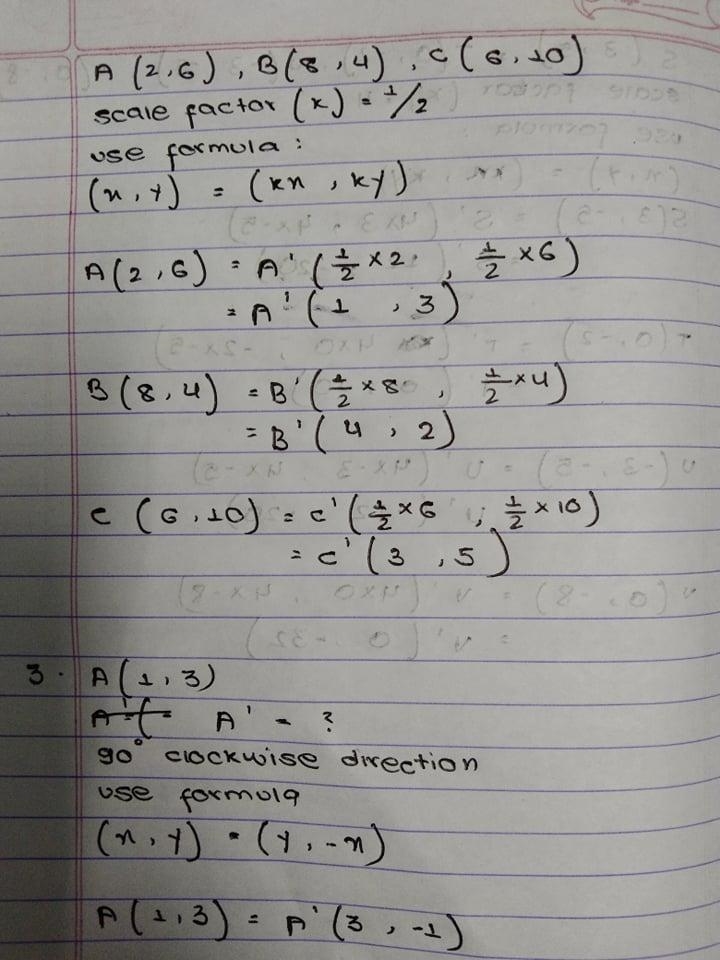 A (2,6), B(8,4), C(6,10)
scale factor (k) = 1/2
use formula:
(x,y) = (kx, ky)
A(2,6) = A'(1/2 × 2, 1/2 × 6)
= A'(1, 3)
B(8,4) = B'(1/2 × 8, 1/2 × 4)
= B'(4, 2)
C(6,10) = C'(1/2 × 6, 1/2 × 10)
= C'(3, 5)
3. A(1,3)
A' = ?
90° clockwise direction
use formula
(x,y) = (y,-x)
A(1,3) = A'(3,-1)